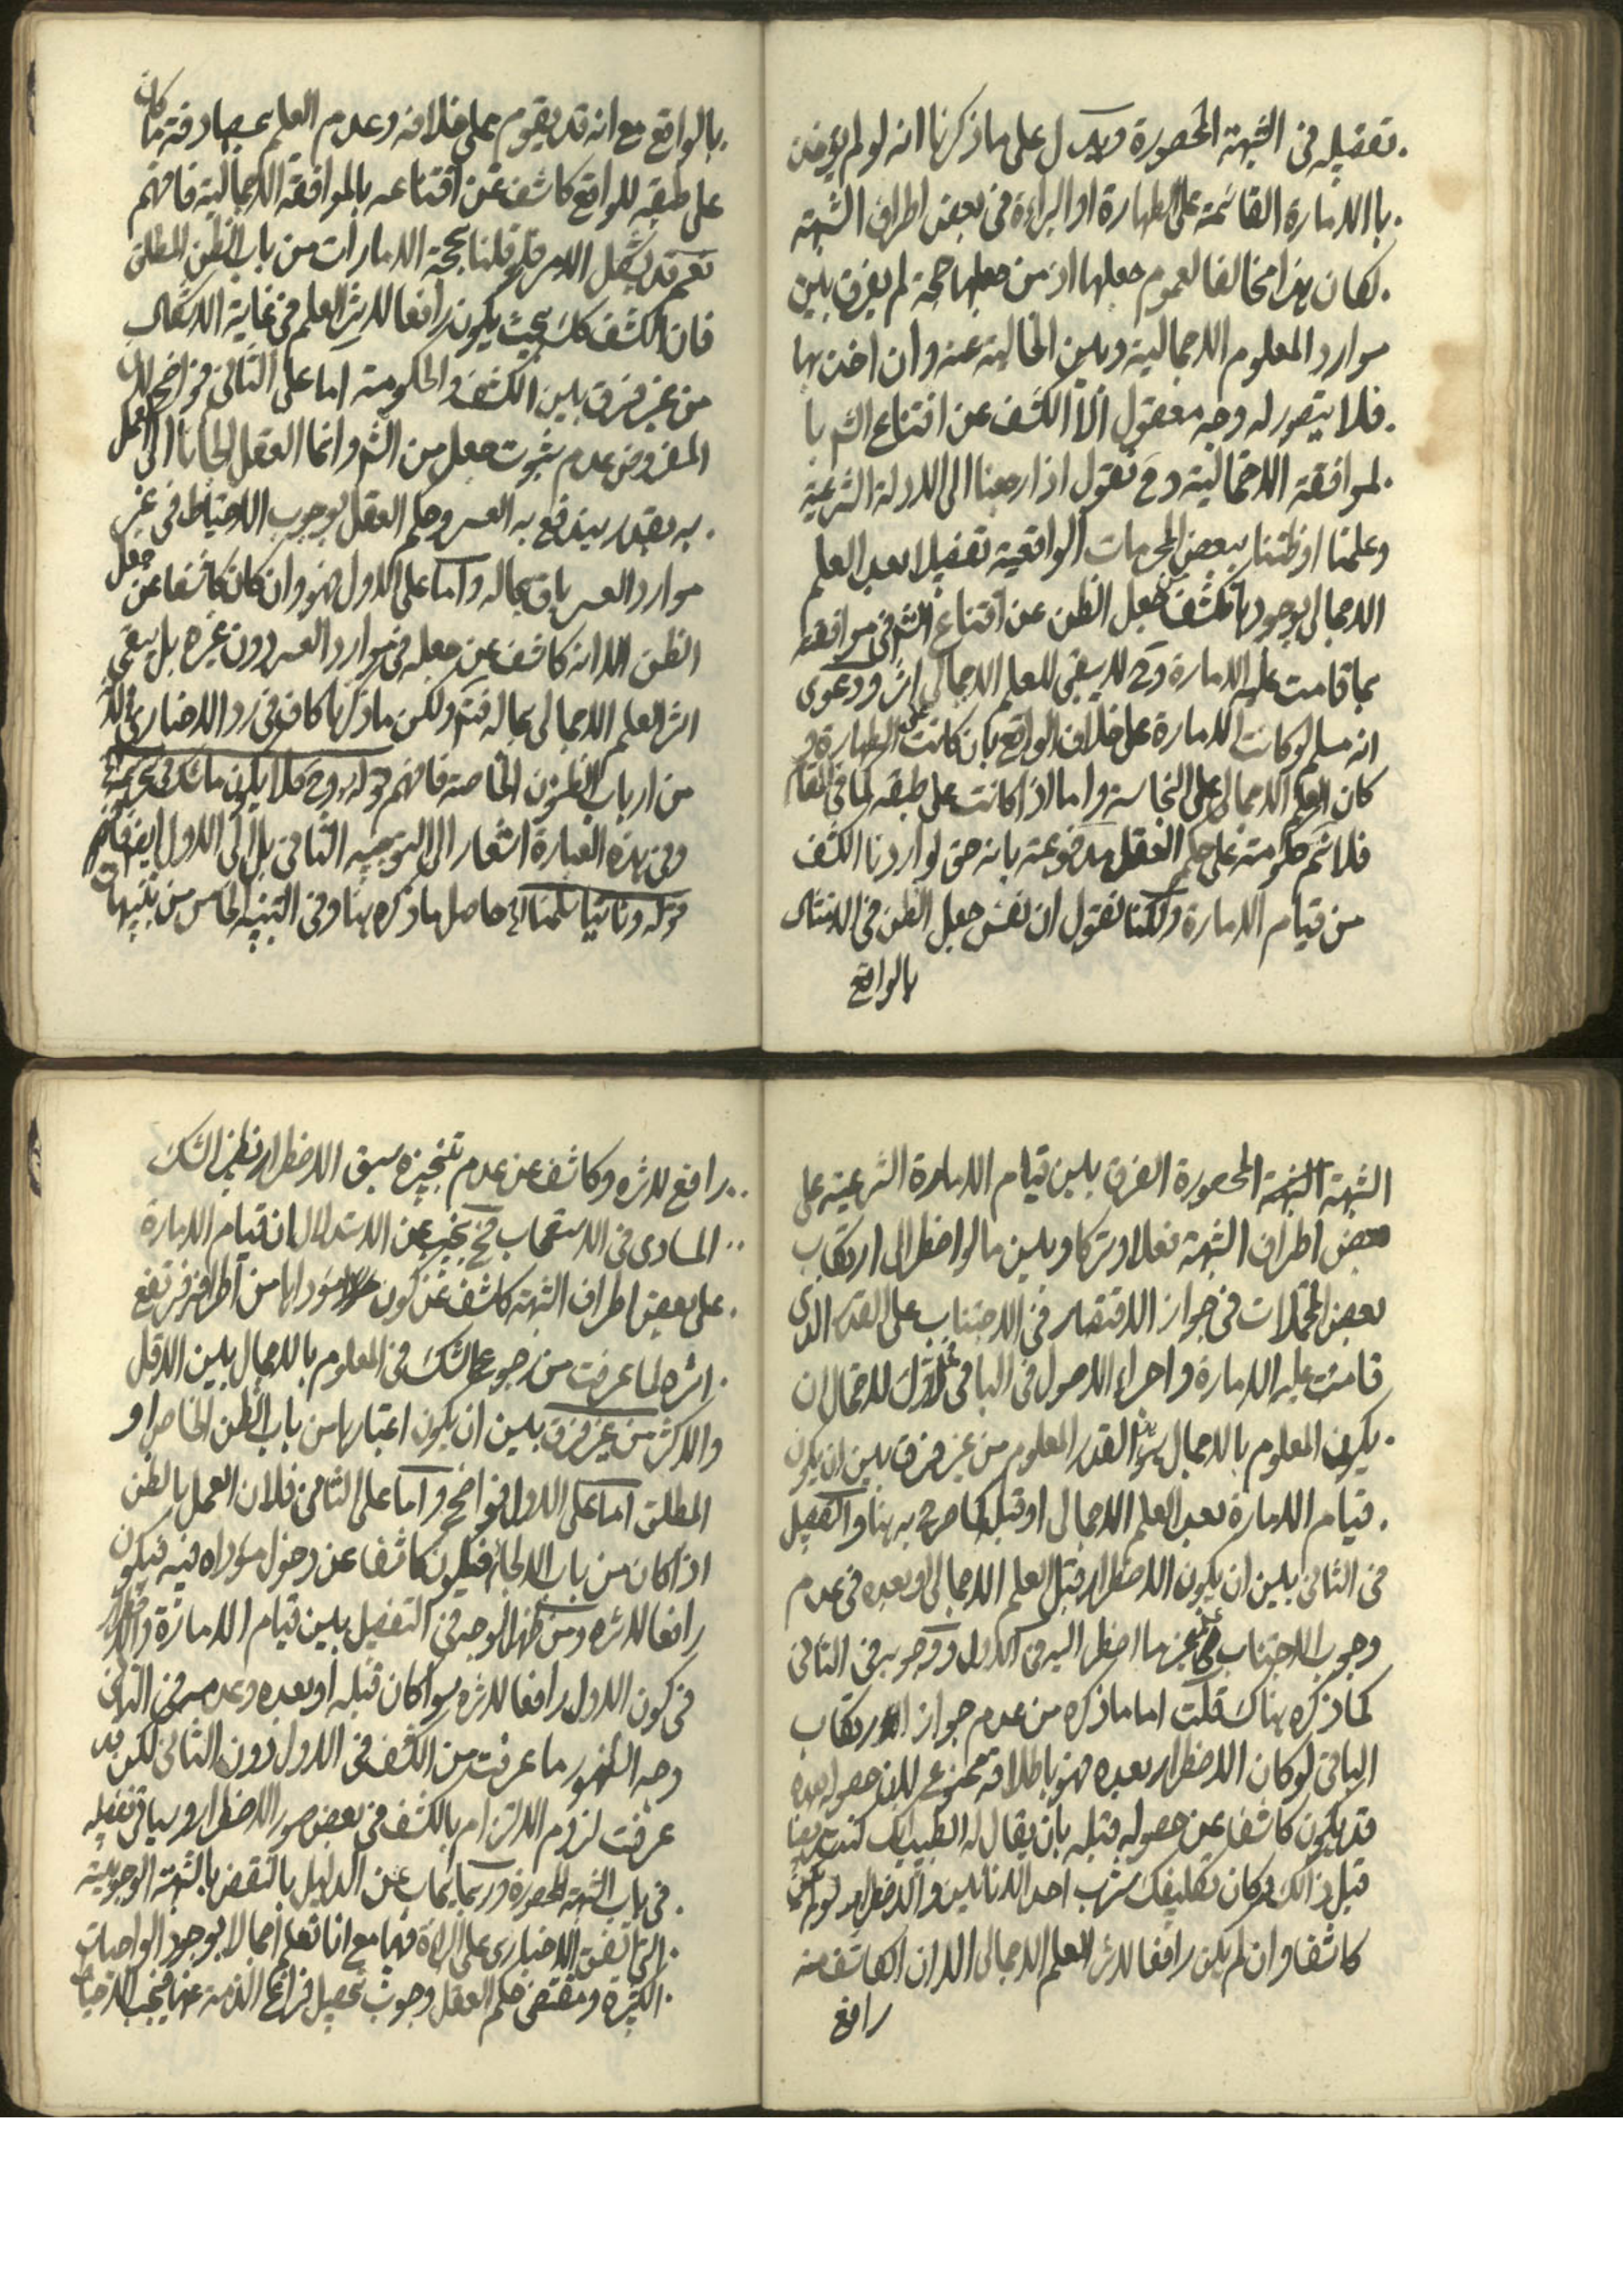 تفصيله فى الشبهة المحصورة ويدل على ما ذكرنا انه لو لم يؤخذ
با الامارة القائمة على الطهارة او البراءة فى بعض اطراف الشبهة
لكان هذا مخالفا لعموم جعلها اذ من جعلها حجة لم يفرق بين
موارد المعلوم الاجمالية وبين الخالية عنه وان اخذ بها
فلا يتصور له وجه معقول الا الكشف عن اقتناع الشم با
لموافقة الاحتمالية وح نقول اذا رجعنا الى الادلة الشرعية
وعلمنا او ظننا ببعض المحرمات الواقعية تفصيلا بعد العلم
الاجمالى بوجودها كشف جعل الظن عن اقتناع الشم فى موافقته
بما قامت عليه الامارة وح لا يبقى للعلم الاجمالى اثر ودعوى
انه مسلم لو كانت الامارة على خلاف الواقع بان كانت على الطهارة و
كان العلم الاجمالى على النجاسة واما اذا كانت على طبقه كما فى المقام
فلا نم حكومته على حكم العقل مدفوعة بانه حق لو اردنا الكشف
من قيام الامارة ولكنا نقول ان نفس جعل الظن فى الامتثال
بالواقع
بالواقع مع انه قد يقوم على خلافه وعدم العلم بمصادفة ما كان
على طبقه للواقع كاشف عن اقتناعه بالموافقة الاجمالية فافهم
نعم قد يشكل الامر فلو قلنا بحجية الامارات من باب الظن المطلق
فان الكشف كك بحيث يكون رافعا لاثر العلم فى غاية الاشكال
من غير فرق بين الكشف والحكومة اما على الثانى فواضح لان
المفروض عدم ثبوت جعل من الشم وانما العقل الجانا الى العمل
به بقدر يندفع به العسر وحكم العقل بوجوب الاحتياط فى غير
موارد العسر باق بحاله واما على الاول فهو وان كان كاشفا عن جعل
الظن الا انه كاشف عن جعله فى موارد العسر دون غيره بل يبقى
اثر العلم الاجمالى بحاله فتم ولكن ما ذكرنا كاف فى رد الاخبارى
من ارباب الظنون الخاصة فافهم قوله وح فلا يكون ما شك فى تحريمه
وفى هذه العبارة اشعار الى التوجيه الثانى بل الى الاول ايضا فافهم
قوله وثانيا سلمنا اه حاصل ما ذكره هنا وفى التنبيه الخامس من تنبيهات
الشبهة المحصورة الفرق بين قيام الامارة الشرعية على
بعض اطراف الشبهة فعلا وتركا وبين ما لو اضطر الى ارتكاب
بعض المحتملات فى جواز الاقتصار فى الاجتناب على القدر الذى
قامت عليه الامارة واجراء الاصول فى الباقى للاول لاحتمال ان
يكون المعلوم بالاجمال هو القدر المعلوم من غير فرق بين ان يكون
قيام الامارة بعد العلم الاجمالى او قبله كما صرح به هنا والتفصيل
فى الثانى بين ان يكون الاضطرار قبل العلم الاجمالى او بعده فى عدم
وجوب الاجتناب عن غير ما اضطر اليه فى الاول ووجوبه فى الثانى
كما ذكره هناك قلت اما ما ذكره من عدم جواز ارتكاب
الباقى لو كان الاضطرار بعده فهو باطلاقه ممنوع لان حصوله بعده
قد يكون كاشفا عن حصوله قبله بان يقال له الطبيب انك كنت مريضا
قبل ذلك وكان تكليفك شرب احد الانائين والاضطرار لو لم يكن
كاشفا وان لم يكن رافعا لاثر العلم الاجمالى الا ان الكاشف منه
رافع
رافع لاثره وكاشف عن عدم تنجيزه سبق الاضطرار نظير الشك
السارى فى الاستصحاب فح نجيب عن الاستدلال ان قيام الامارة
على بعض اطراف الشبهة كاشف عن كون مؤداها من اطرافه فيرتفع
اثره لما عرفت من رجوع الشك فى المعلوم بالاجمال بين الاقل
والاكثر من غير فرق بين ان يكون اعتبارها من باب الظن الخاص او
المطلق اما على الاول فواضح واما على الثانى فلان العمل بالظن
اذا كان من باب الالجاء فيكون كاشفا عن دخول مؤداه فيه فيكون
رافعا لاثره ومن هنا ظهر الوجه فى التفصيل بين قيام الامارة والاضطرار
فى كون الاول رافعا لاثره سوا كان قبله او بعده وعدمه فى الثانى
وجه الظهور ما عرفت من الكشف فى الاول دون الثانى لكن قد
عرفت لزوم الالتزام بالكشف فى بعض صور الاضطرار وسياتى تفصيله
فى باب الشبهة المحصورة وربما يجاب عن الدليل بالنقض بالشبهة الوجوبية
التى اتفق الاخبارى على البراءة فيها مع انا نعلم اجمالا بوجود الواجبات
الكثيرة ومقتضى حكم العقل وجوب تحصيل فراغ الذمة عنها فيجب الاحتياط